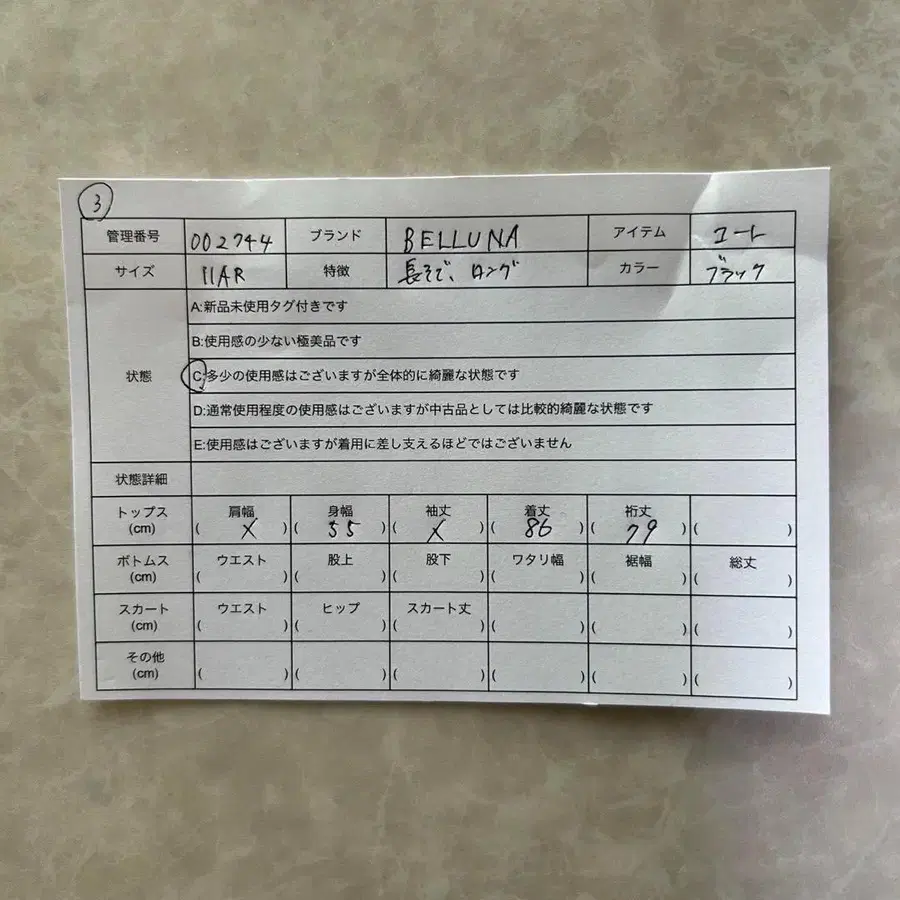 3
管理番号 002744 ブランド BELLUNA アイテム コート
サイズ 11AR 特徴 長そで、ロング カラー ブラック
状態
A:新品未使用タグ付きです
B:使用感の少ない極美品です
C:多少の使用感はございますが全体的に綺麗な状態です
D:通常使用程度の使用感はございますが中古品としては比較的綺麗な状態です
E:使用感はございますが着用に差し支えるほどではございません
状態詳細
トップス 肩幅 身幅 袖丈 着丈 裄丈
(cm) ( X ) ( 55 ) ( X ) ( 86 ) ( 79 ) ( )
ボトムス ウエスト 股上 股下 ワタリ幅 裾幅 総丈
(cm) ( ) ( ) ( ) ( ) ( ) ( )
スカート ウエスト ヒップ スカート丈
(cm) ( ) ( ) ( ) ( ) ( ) ( )
その他
(cm) ( ) ( ) ( ) ( ) ( ) ( )